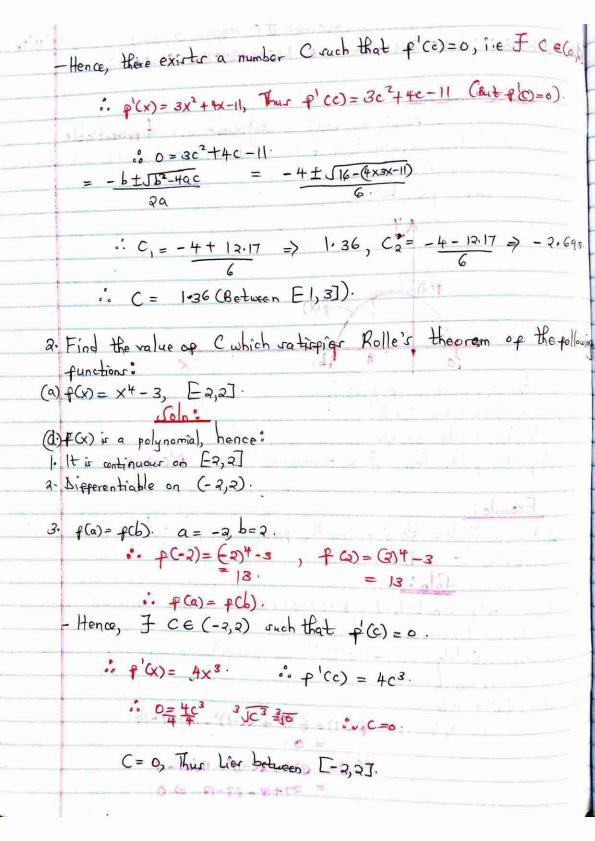 - Hence, there exists a number C such that f'(c)=0, i.e ∃ C ∈(a,b)
∴ f'(x) = 3x²+4x-11, Thus f'(c) = 3c²+4c-11 (But f'(c)=0).
∴ 0=3c²+4c-11.
= -b±√b²-4ac / 2a = -4±√16-(4x3x-11) / 6.
∴ C₁ = -4+12.17 / 6 ⇒ 1.36, C₂ = -4-12.17 / 6 ⇒ -2.695
∴ C = 1.36 (Between [1,3]).
2. Find the value of C which satisfies Rolle's theorem of the following
functions:
(a) f(x) = x⁴-3, [-2,2].
Soln:
(a) f(x) is a polynomial, hence:
1. It is continuous on [-2,2]
2. Differentiable on (-2,2).
3. f(a) = f(b). a = -2, b=2.
∴ f(-2) = (-2)⁴-3 , f(2) = (2)⁴-3
= 13. = 13
∴ f(a) = f(b).
- Hence, ∃ C ∈ (-2,2) such that f'(c) = 0.
∴ f'(x) = 4x³. ∴ f'(c) = 4c³.
∴ 0/4 = 4c³/4 ³√c³ = ³√0 ∴ C=0.
C = 0, Thus Lies between [-2,2].